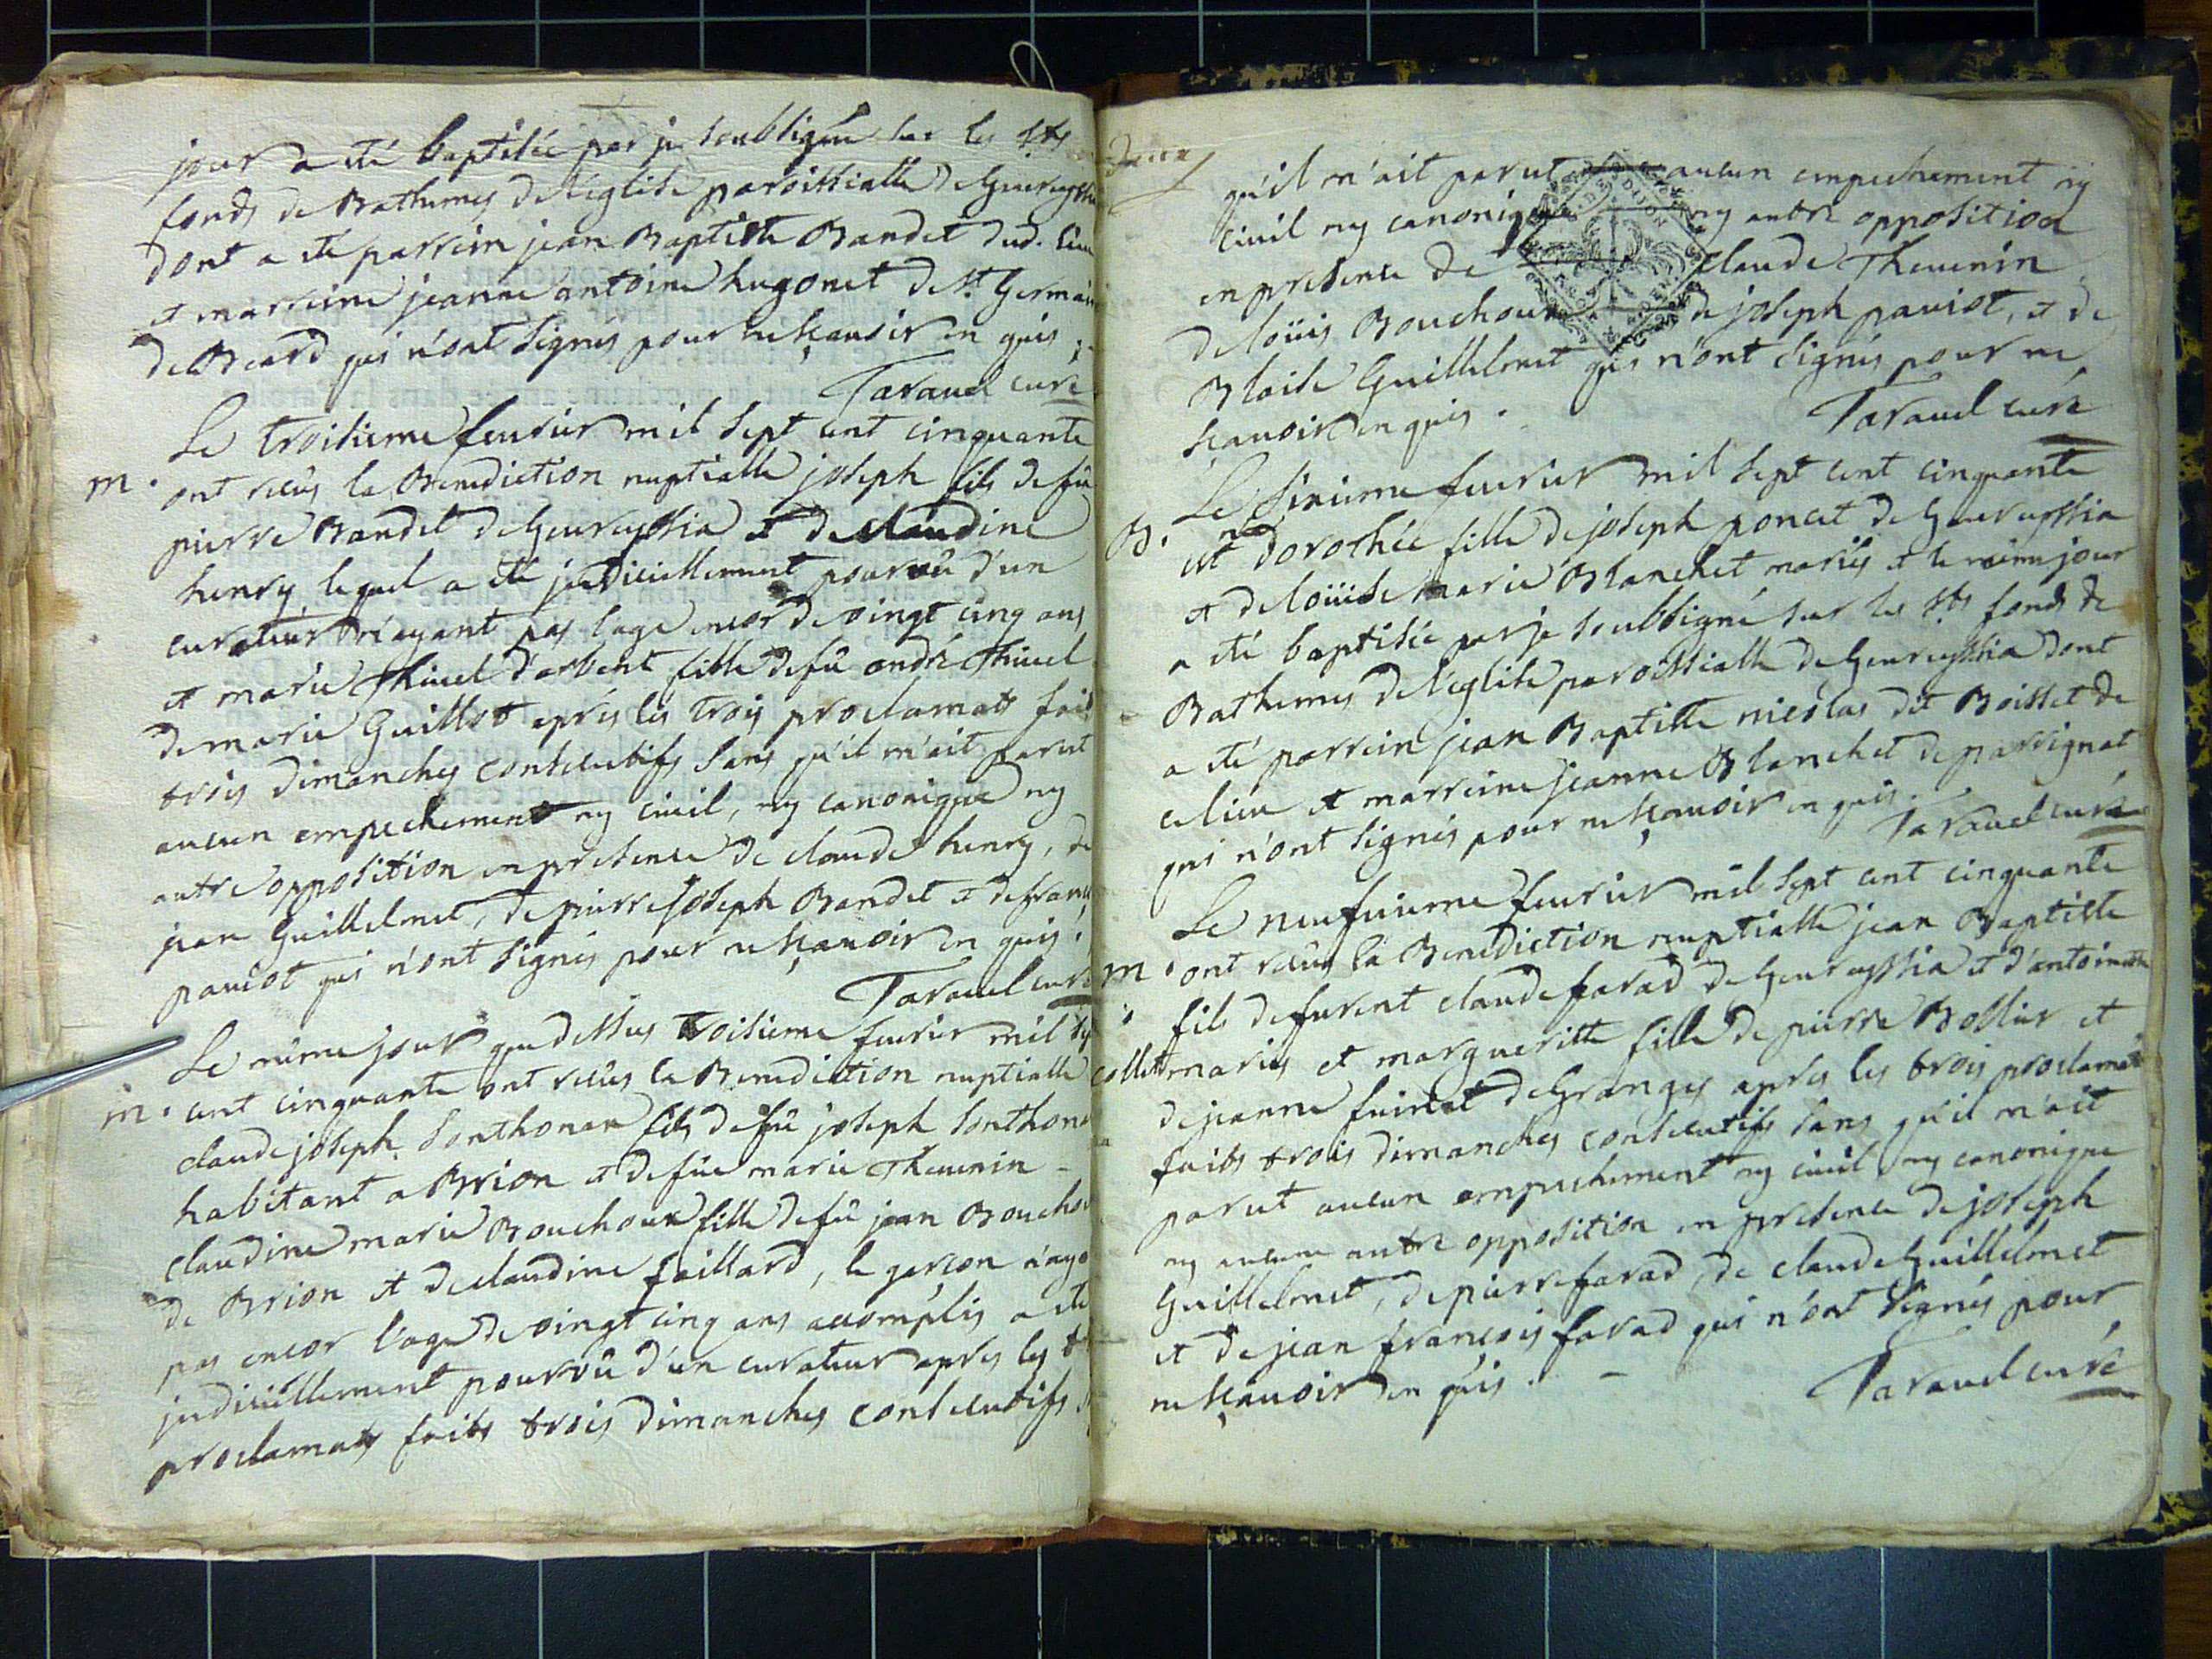 jour a eté baptisée par je soubsigné sur les sts
fonds de Bathemes de l'eglise paroissialle de Geureyssia
dont a eté parrein jean Baptiste Bandet dud. lieu
et marreine jeanne antoine hugonet de st Germain
de Beard qui n'ont signés pour ne sçauoir en quis.
Tarauel curé
Le troisieme feurier mil sept cent cinquante
m. ont reçus la Benediction nuptialle joseph fils de fû
pierre Bandet de Geureyssia et de claudine
henry lequel a eté judiciellement pouruû d'un
curateur n'ayant pas lage encor de vingt cinq ans
et marie Thiuel d'arbent fille de fû andré Thiuel
de marie Guillot aprés les trois proclamats faits
trois dimanches consecutifs sans qu'il m'ait parut
aucun empechement ny ciuil, ny canonique ny
autre opposition en presence de claude henry, de
jean Guillelmet, de pierre joseph Bandet et de franc
pauiot qui n'ont signés pour ne sçauoir en quis.
Tarauel curé
Le même jour que dessus troisieme feurier mil sept
m. cent cinquante ont reçus la Benediction nuptialle
claude joseph Sonthonax fils de fû joseph Sonthona
habitant a Brion et de füe marie Theuenin -
claudine marie Bouchoux fille de fû jean Bouchou
de Brion et de claudine faillard, le garcon n'aya
pas encor l'age de vingt cinq ans accomplis a eté
judiciellement pourvû d'un curateur apres les t
proclamats faits trois dimanches consecutifs s
deux
qu'il m'ait parut aucun empechement ny
ciuil ny canonique ny autre opposition
en presence de claude Theuenin
de loüis Bouchoux de joseph pauiot, et de
Blaise Guillelmet qui n'ont signés pour ne
sçauoir en quis.
Tarauel curé
Le sixieme feurier mil sept cent cinquante
B. est née dorothée fille de joseph poncet de Geureyssia
et de loüise marie Blanchet mariés et le même jour
a eté baptisée par je soubsigné sur les sts fonds de
Bathemes de l'eglise paroissialle de Geureyssia dont
a eté parrein jean Baptiste nicolas dit Boisset de
ce lieu et marreine jeanne Blanchet de parsignat
qui n'ont signés pour ne sçauoir en quis.
Tarauel curé
Le neufuieme feurier mil sept cent cinquante
m. ont reçus la Benediction nuptialle jean Baptiste
fils defunt claude farad de Geureyssia et d'antoinette
collet mariés et margueritte fille de pierre Bollier et
de jeanne fuinet de Granges apres les trois proclamats
faits trois dimanches consecutifs sans qu'il m'ait
parut aucun empechement ny ciuil ny canonique
ny aucune autre opposition en presence de joseph
Guillelmet, de pierre farad, de claude Guillelmet
et de jean francois farad qui n'ont signés pour
ne sçauoir en quis. -
Tarauel curé